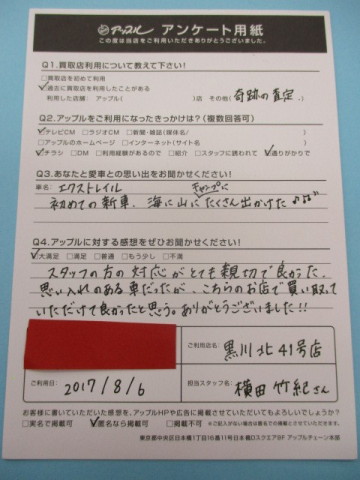 アップル アンケート用紙
この度は当店をご利用いただきありがとうございました。
Q1.買取店利用について教えて下さい!
□買取店を初めて利用
☑過去に買取店を利用したことがある
利用した店舗: アップル( )店 その他( 奇跡の査定 )
Q2.アップルをご利用になったきっかけは?(複数回答可)
☑テレビCM □ラジオCM □新聞・雑誌(媒体名/ )
□アップルのホームページ □インターネット(サイト名 )
☑チラシ □DM □利用経験があるので □紹介 □スタッフに誘われて ☑通りがかりで
Q3.あなたと愛車との思い出をお聞かせください!
車名: エクストレイル
初めての新車、海に山にキャンプにたくさん出かけた♪♪
Q4.アップルに対する感想をぜひお聞かせください!
☑大満足 □満足 □普通 □もう少し □不満
スタッフの方の対応がとても親切で良かった。
思い入れのある車だったが、こちらのお店で買い取って
いただけて良かったと思う。ありがとうございました!!
ご利用店名: 黒川北41号店
ご利用日: 2017/8/6
担当スタッフ名: 横田竹紀さん
お客様に書いていただいた感想を、アップルHPや広告に掲載させていただいてもよろしいでしょうか?
□実名で掲載可 ☑匿名なら掲載可 □掲載不可 ※ご記入がない場合は匿名での掲載とさせていただきます。
東京都中央区日本橋1丁目16番11号日本橋DスクエアBF アップルチェーン本部